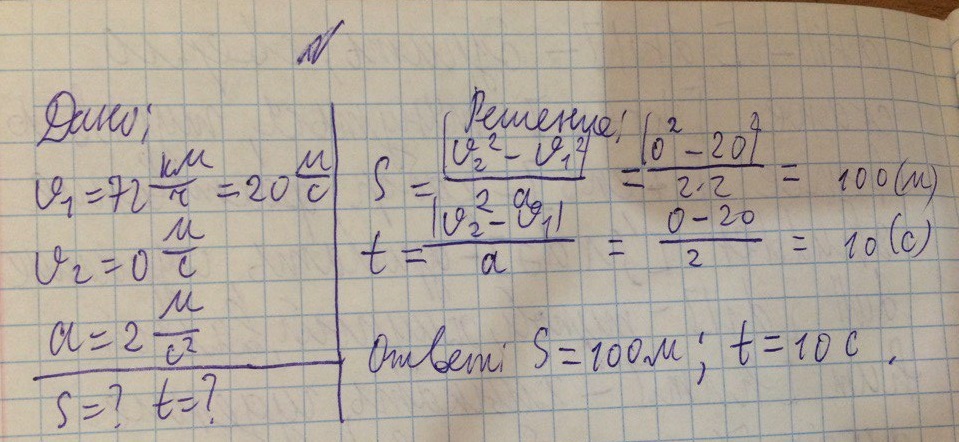 Дано;
υ₁ = 72 км/ч = 20 м/с
υ₂ = 0 м/с
a = 2 м/с²
S = ? t = ?
Решение;
S = |υ₂² - υ₁²| / 2a = |0² - 20²| / 2·2 = 100 (м)
t = |υ₂ - υ₁| / a = 0 - 20 / 2 = 10 (с)
Ответ: S = 100 м; t = 10 с.